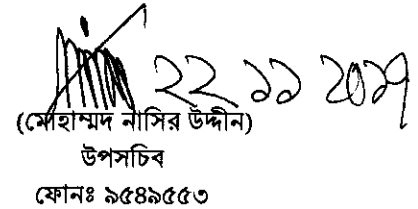 ২২ ১১ ২০১৭
(মোহাম্মদ নাসির উদ্দীন)
উপসচিব
ফোনঃ ৯৫৪৯৫৫৩